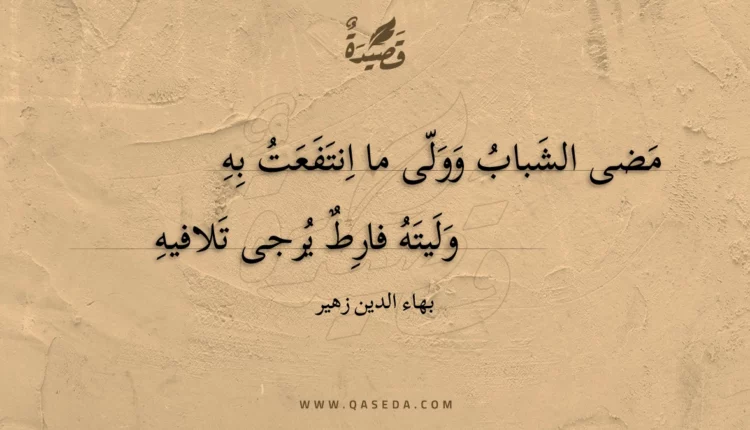 قَصِيْدَةٌ
مَضى الشَبابُ وَوَلّى ما اِنتَفَعَتُ بِهِ
وَلَيتَهُ فارِطٌ يُرجى تَلافيهِ
بهاء الدين زهير
WWW.QASEDA.COM